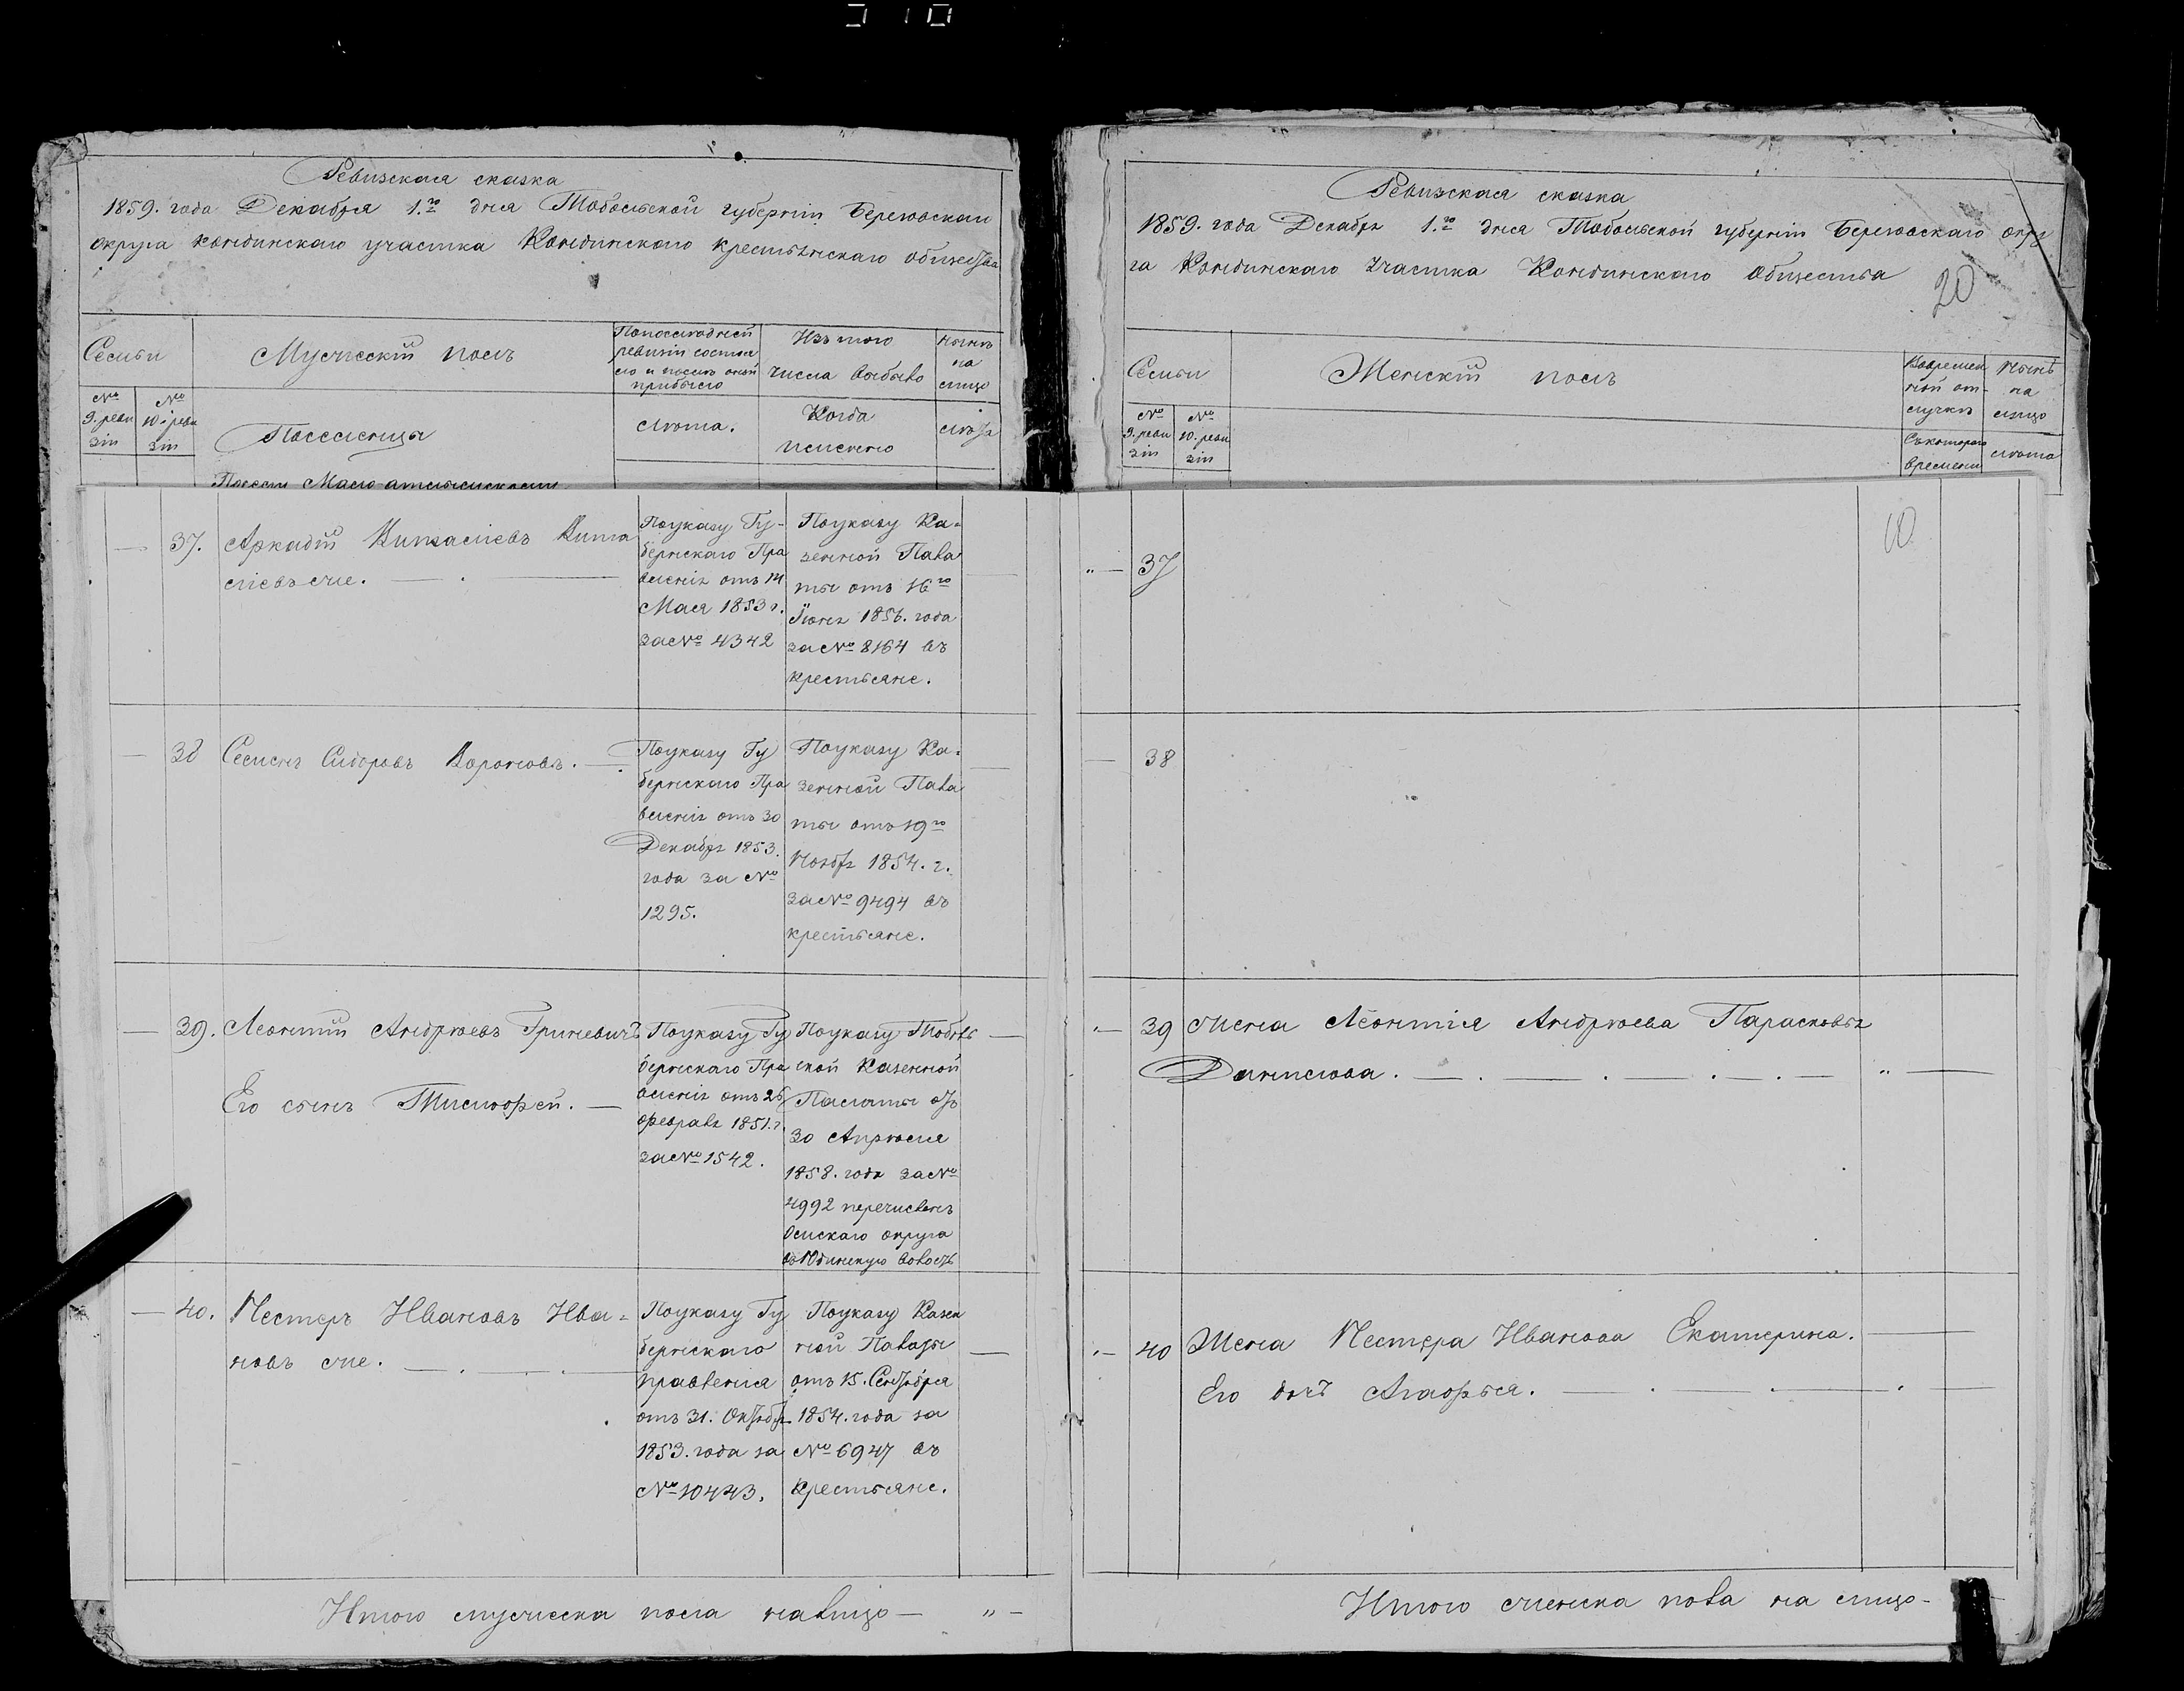 Ревизская сказка
1859. года Декабря 1.го дня Тобольской губернiи Березовскаго
округа Кондинскаго участка Кондинскаго крестьянскаго общества
Семьи
Мужескiй полъ
По последней
ревизiи состоя
ло и после оной
прибыло
Изъ того
числа выбыло
Ныне
на
лицо
№
9. реви
зiи
№
10. реви
зiи
Поселенцы
лета.
Когда
именно
лета
37. Аркадiй
Поуказу Гу-
бернскаго Пра
вленiя отъ 14
Мая 1853 г.
за № 4342
Поуказу Ка-
зенной Пала
ты отъ 16го
Iюня 1856. года
за № 8164 въ
крестьяне.
38 Семенъ Сидоровъ Вороновъ.
Поуказу Гу
бернскаго Пра
вленiя отъ 30
Декабря 1853.
года за №
1295.
Поуказу Ка-
зенной Пала
ты отъ 19го
Ноября 1854. г.
за № 9494 въ
крестьяне.
39. Леонтiй Андреевъ Гриневичъ
Его сынъ Тимофей.
Поуказу Гу
бернскаго Пра
вленiя отъ 26
февраля 1851. г.
за № 1542.
Поуказу Тоболь
ской Казенной
Палаты отъ
30 Апреля
1858. года за №
4992 перечисленъ
Омскаго округа
волость
40. Нестеръ Ивановъ Ива-
новъ же.
Поуказу Гу
бернскаго
правленiя
отъ 31. Октября
1853. года за
№ 10443.
Поуказу Казен
ной Палаты
отъ 15. Сентября
1854. года за
№ 6947 въ
крестьяне.
Итого мужеска пола налицо — " —
Ревизская сказка
1859. года Декабря 1.го дня Тобольской губернiи Березовскаго окру
га Кондинскаго участка Кондинскаго общества
20
Семьи
Женскiй полъ
Вовремен
ной от-
лучке
Ныне
на
лицо
№
9. реви
зiи
№
10. реви
зiи
Съ котораго
времени
лета
37
38
39 Жена Леонтiя Андреева Парасковья
Данилова.
40 Жена Нестера Иванова Екатерина.
Его дочь Агафья.
Итого женска пола на лицо —